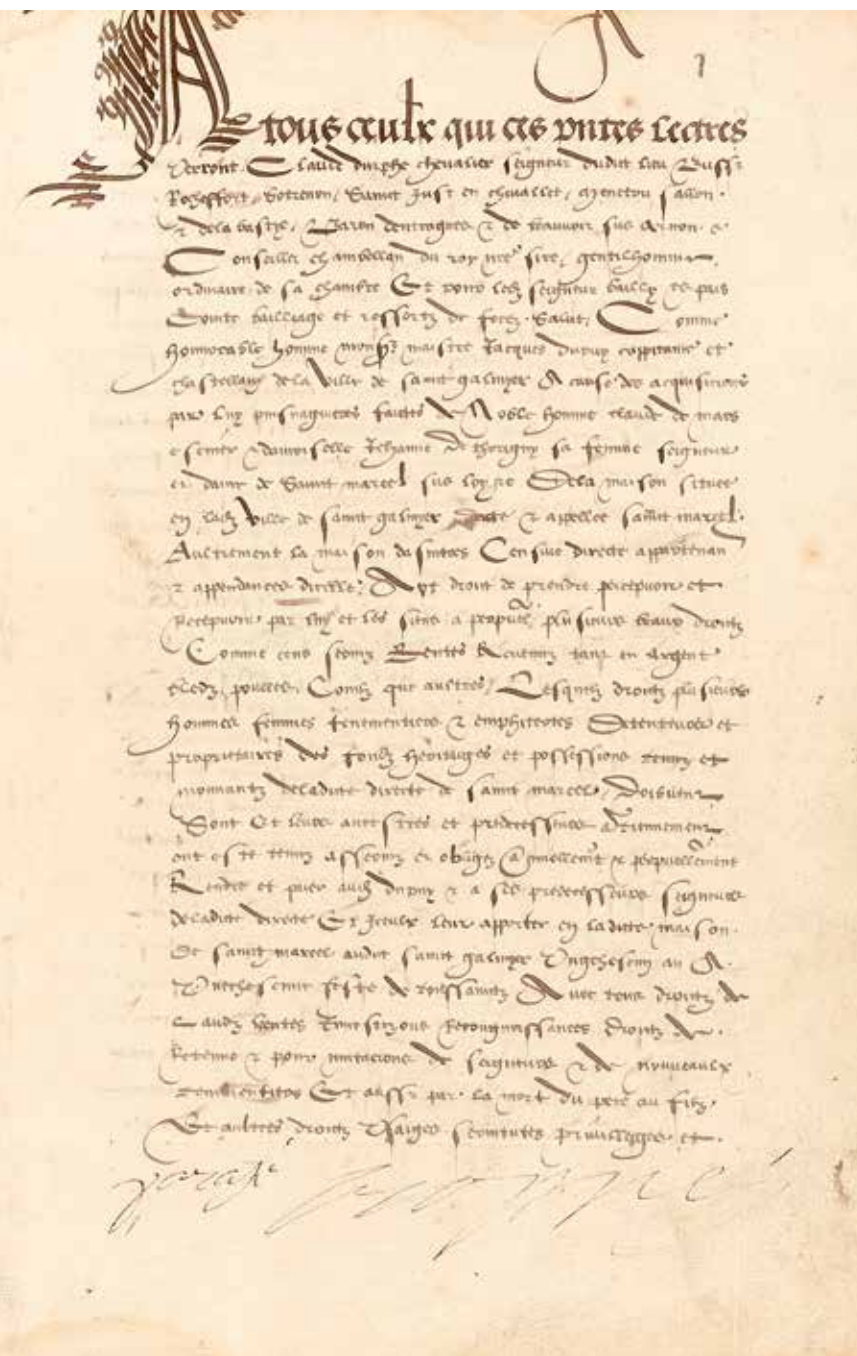 A tous ceulx qui ces pntes lectres
verront. Claude durphe chevalier seigneur dudict lieu Buss
Rocheffort, Sainct Just en chevallet,
& dela bastye, Baron dentragues & de beauvoir sus arnon. &
Conseiller chambellan du roy nre sire, gentilhomme
ordinaire de sa chambre Et pour led seigneur bailly es pais
Conte bailliage et ressortz de forez. Salut, Comme
honnorable homme maistre Jacques dupuy cappitaine et
chastellain dela ville de sainct galmyer A cause des acquisitions
par luy faictes de Noble homme claude de mars
& damoiselle Jehanne de thorigny sa femme seigneur
et dame de Sainct marcel sus loyre Dela maison situee
en lad ville de sainct galmyer dicte & appellee sainct marcel.
Aultrement la maison Censive directe appartenan
& appendances dicelle, Ayt droit de prendre percepvoir et
recepvoir par luy et les siens a plusieurs beaux droictz
Comme cens rentes tant en argent
bledz, poulles, que aultres, Lesquelz droictz plusieurs
hommes femmes tenementiers & emphiteotes Detenteurs et
proprietaires des fondz heritaiges et possessions tenuz et
mouvantz deladicte directe de sainct marcel, Doibvent
Sont Et leurs ancestres et predecesseurs
ont este tenuz et obligez annuellemt & perpetuellement
Rendre et paier aud dupuy & a ses predecesseurs seigneurs
deladicte directe Et Iceulx leur apporter en ladicte maison.
De sainct marcel audict sainct galmyer
feste de toussainctz Avec tous droictz de
Laudz ventes Recongnoissances droictz de
Retenue & pour mutacions de seigneurs & de nouveaulx
Et aussi par la mort du pere au filz.
Et aultres droictz Usaiges privilleges et